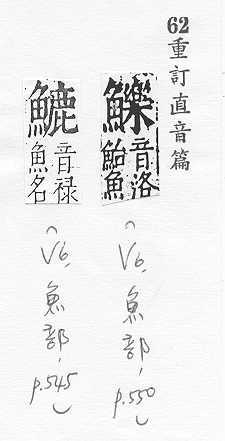 62重訂直音篇
鱳
音洛
鮐魚
(V6, 魚部, p.550)
音禄
魚名
(V6, 魚部, p.545)